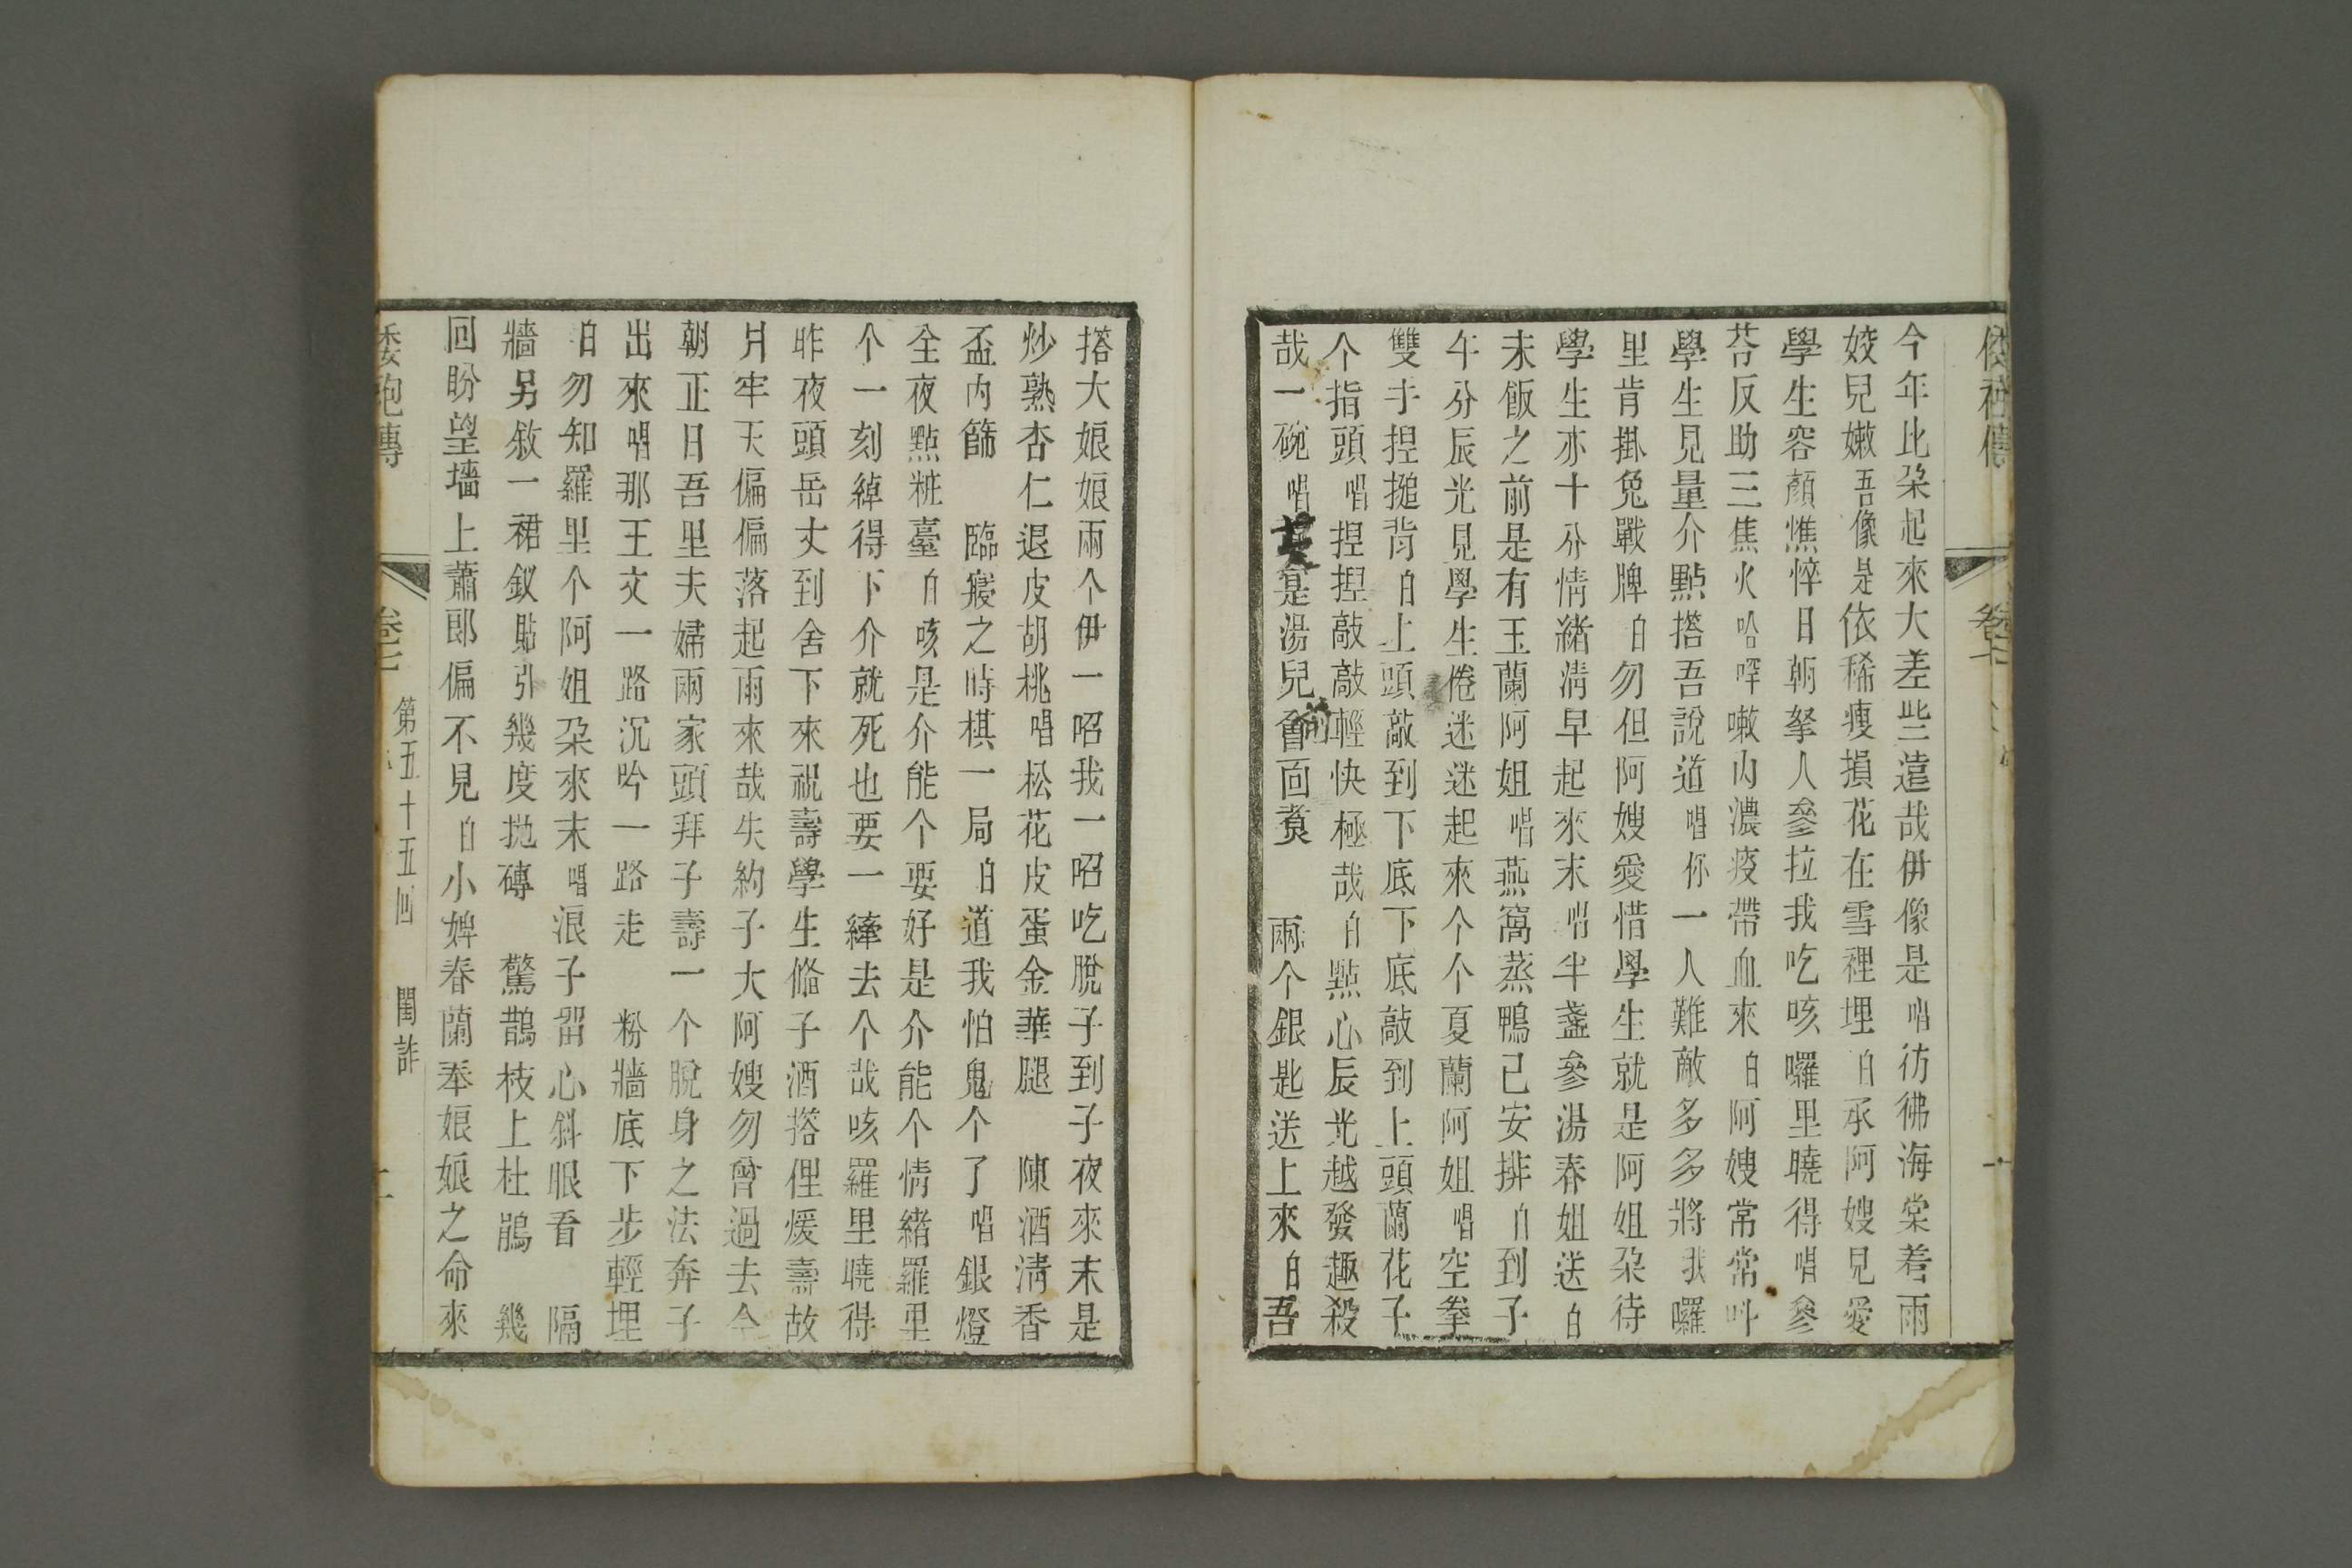 今年比朶起來大差些遠哉伊像是唱彷彿海棠着雨
姣兒嫩吾像是依稀瘦損花在雪裡埋白承阿嫂見愛
學生容顏憔悴日朝拏人參拉我吃咳囉里曉得唱參
苓反助三焦火哈啐嗽內濃痰帶血來白阿嫂常常叫
學生見量介點搭吾說道唱你一人難敵多多將我囉
里肯掛兔戰牌白勿但阿嫂愛惜學生就是阿姐朶待
學生亦十分情緒淸早起來末唱半盞參湯春姐送白
末飯之前是有玉蘭阿姐唱燕窩蒸鴨已安排白到子
午分辰光見學生倦迷迷起來个个夏蘭阿姐唱空拳
雙手捏搥背白上頭敲到下底下底敲到上頭蘭花子
个指頭唱捏捏敲敲輕快極哉白點心辰光越發趣殺
哉一碗唱芡寔湯兒會回煑　兩个銀匙送上來白吾
搭大娘娘兩个伊一招我一招吃脫子到子夜來末是
炒熟杏仁退皮胡桃唱松花皮蛋金華腿　陳酒淸香
盃內篩　臨寢之時棋一局白道我怕鬼个了唱銀燈
全夜點粧臺白咳是介能个要好是介能个情緒羅里
个一刻綽得下介就死也要一縴去个哉咳羅里曉得
昨夜頭岳丈到舍下來祝壽學生脩子酒搭俚煖壽故
月牢天偏偏落起雨來哉失約子大阿嫂勿曾過去今
朝正日吾里夫婦兩家頭拜子壽一个脫身之法奔子
出來唱那王文一路沉吟一路走　粉牆底下步輕埋
白勿知羅里个阿姐朶來末唱浪子畱心斜眼看　隔
牆另敘一裙釵貼引幾度拋磚　驚鵲枝上杜鵑　幾
回盼望墻上蕭郎偏不見白小婢春蘭奉娘娘之命來
倭袍傳　第五十五回　閨詐